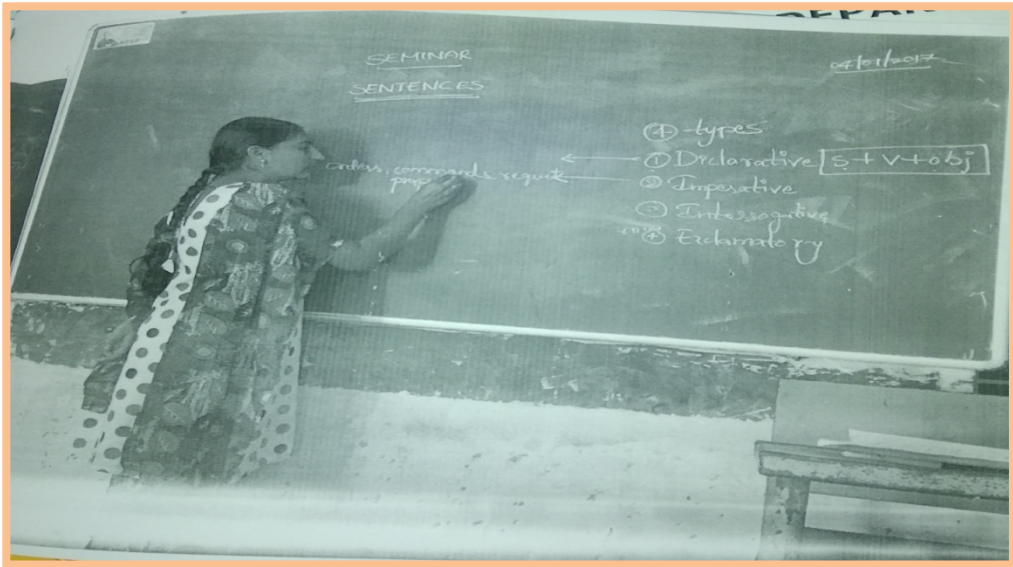 DEPAR
SEMINAR
04/01/2017
SENTENCES
④ types
① Declarative S + V + obj
orders, commands, request
② Imperative
③ Interrogative
④ Exclamatory